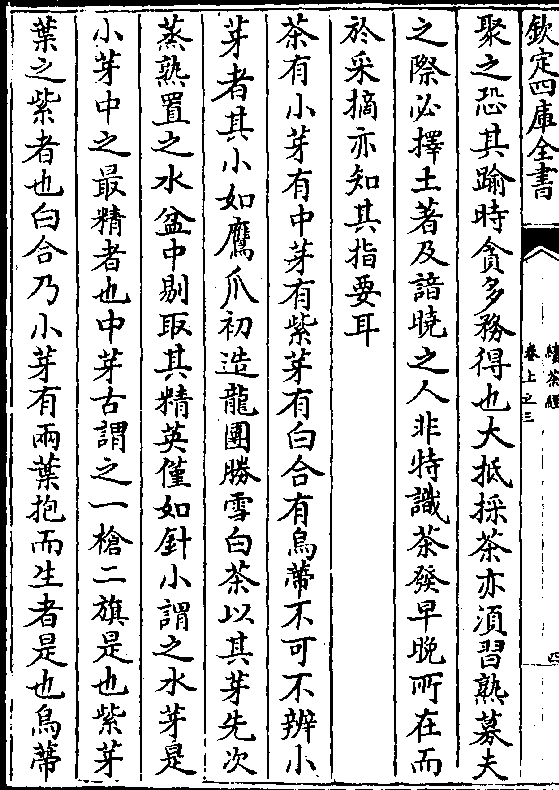 欽定四庫全書
續茶經
卷上之三
四
聚之恐其踰時貪多務得也大抵採茶亦須習熟募夫
之際必擇土著及諳曉之人非特識茶發早晚所在而
於采摘亦知其指要耳
茶有小芽有中芽有紫芽有白合有烏蔕不可不辨小
芽者其小如鷹爪初造龍團勝雪白茶以其芽先次
蒸熟置之水盆中剔取其精英僅如針小謂之水芽是
小芽中之最精者也中芽古謂之一槍二旗是也紫芽
葉之紫者也白合乃小芽有兩葉抱而生者是也烏蔕